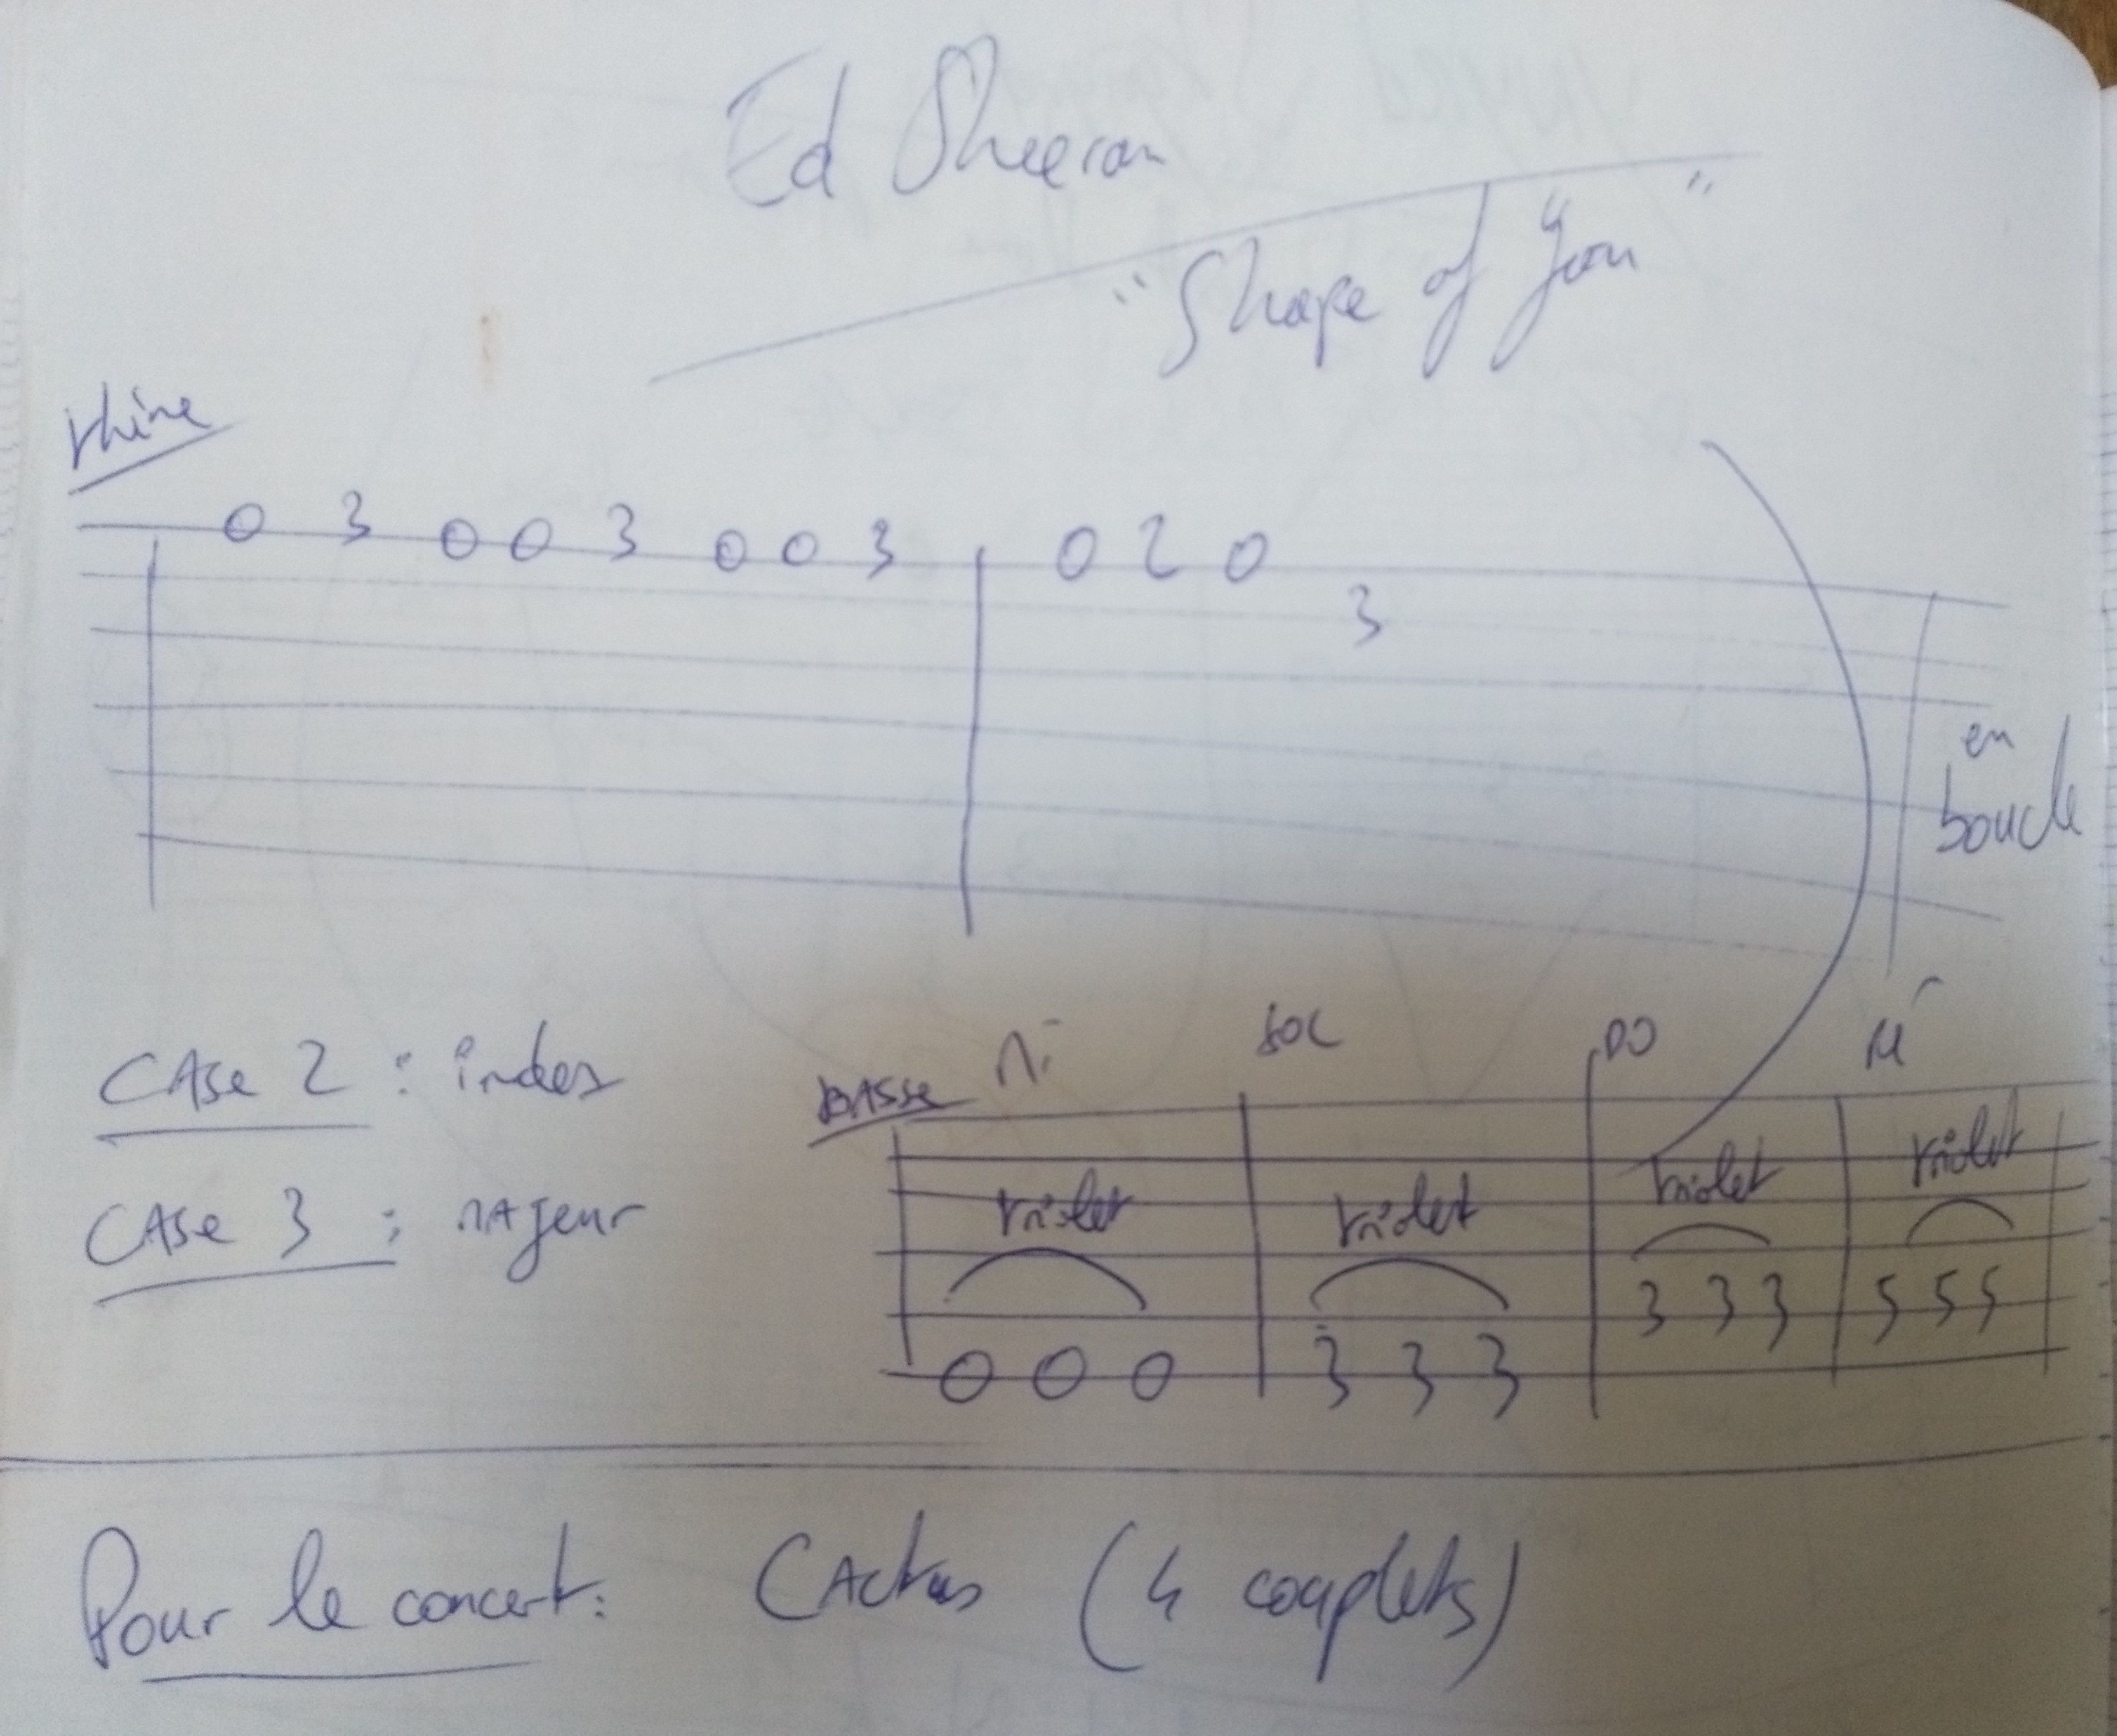 Ed Sheeran
"Shape of you"
thème
0 3 0 0 3 0 0 3 0 2 0
3
en
boucle
CASe 2 : index
CASe 3 : MAjeur
BASSe Mi SOL DO Ré
triolet triolet triolet triolet
3 3 3 5 5 5
0 0 0 3 3 3
Pour le concert : CActus (4 couplets)